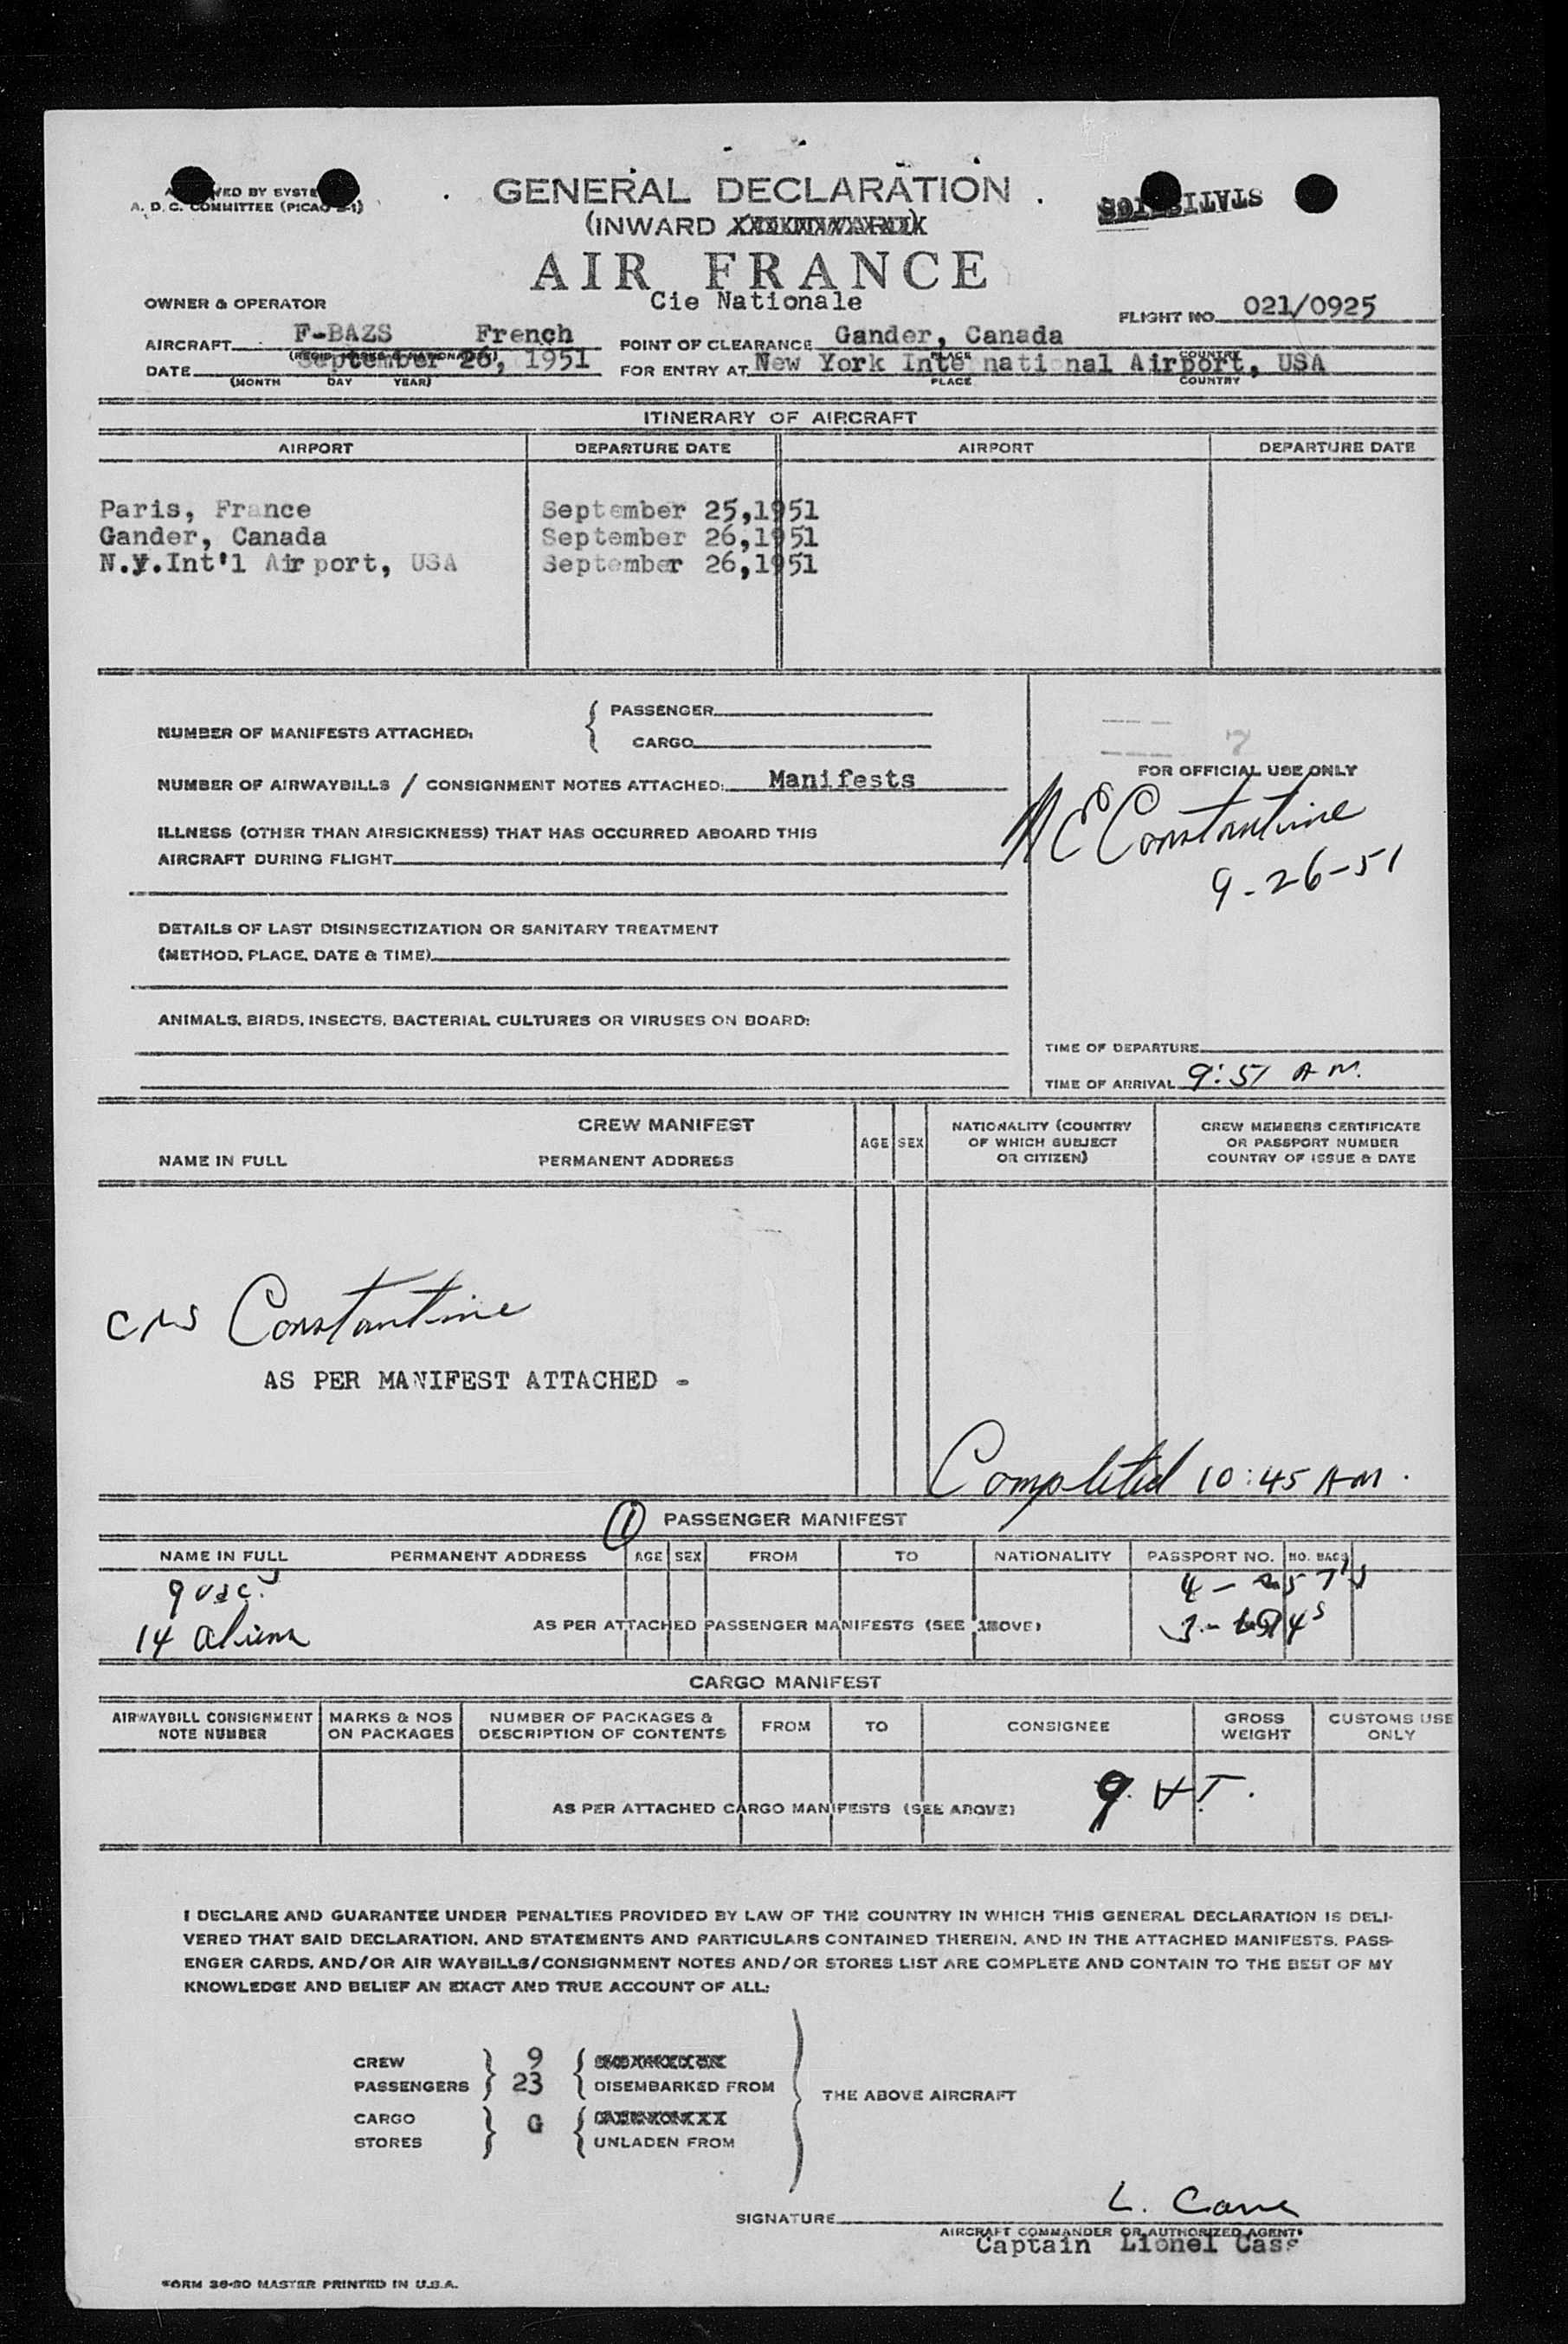 GENERAL DECLARATION
A. D. C. COMMITTEE (PICAO
(INWARD
STATISTICS
AIR FRANCE
OWNER & OPERATOR Cie Nationale
FLIGHT NO. 021/0925
AIRCRAFT F-BAZS French POINT OF CLEARANCE Gander, Canada
(REGIS. MARKS & NATIONALITY) PLACE COUNTRY
DATE September 26, 1951 FOR ENTRY AT New York Inte national Airport, USA
(MONTH DAY YEAR) PLACE COUNTRY
ITINERARY OF AIRCRAFT
AIRPORT DEPARTURE DATE AIRPORT DEPARTURE DATE
Paris, France September 25,1951
Gander, Canada September 26,1951
N.Y.Int'l Air port, USA September 26,1951
NUMBER OF MANIFESTS ATTACHED: { PASSENGER
CARGO
7
FOR OFFICIAL USE ONLY
NUMBER OF AIRWAYBILLS / CONSIGNMENT NOTES ATTACHED: Manifests
Constantine
9-26-51
ILLNESS (OTHER THAN AIRSICKNESS) THAT HAS OCCURRED ABOARD THIS
AIRCRAFT DURING FLIGHT
DETAILS OF LAST DISINSECTIZATION OR SANITARY TREATMENT
(METHOD, PLACE, DATE & TIME)
ANIMALS, BIRDS, INSECTS, BACTERIAL CULTURES OR VIRUSES ON BOARD:
TIME OF DEPARTURE
TIME OF ARRIVAL 9:51 AM.
CREW MANIFEST
NAME IN FULL PERMANENT ADDRESS AGE SEX NATIONALITY (COUNTRY OF WHICH SUBJECT OR CITIZEN) CREW MEMBERS CERTIFICATE OR PASSPORT NUMBER COUNTRY OF ISSUE & DATE
Constantine
AS PER MANIFEST ATTACHED -
Completed 10:45 AM.
1 PASSENGER MANIFEST
NAME IN FULL PERMANENT ADDRESS AGE SEX FROM TO NATIONALITY PASSPORT NO. NO. BAGS
9 usc.
14 aliens AS PER ATTACHED PASSENGER MANIFESTS (SEE ABOVE)
CARGO MANIFEST
AIRWAYBILL CONSIGNMENT NOTE NUMBER MARKS & NOS ON PACKAGES NUMBER OF PACKAGES & DESCRIPTION OF CONTENTS FROM TO CONSIGNEE GROSS WEIGHT CUSTOMS USE ONLY
AS PER ATTACHED CARGO MANIFESTS (SEE ABOVE)
I DECLARE AND GUARANTEE UNDER PENALTIES PROVIDED BY LAW OF THE COUNTRY IN WHICH THIS GENERAL DECLARATION IS DELI-
VERED THAT SAID DECLARATION, AND STATEMENTS AND PARTICULARS CONTAINED THEREIN, AND IN THE ATTACHED MANIFESTS, PASS-
ENGER CARDS, AND/OR AIR WAYBILLS/CONSIGNMENT NOTES AND/OR STORES LIST ARE COMPLETE AND CONTAIN TO THE BEST OF MY
KNOWLEDGE AND BELIEF AN EXACT AND TRUE ACCOUNT OF ALL:
CREW 9
PASSENGERS 23 DISEMBARKED FROM
THE ABOVE AIRCRAFT
CARGO G
STORES UNLADEN FROM
SIGNATURE
AIRCRAFT COMMANDER OR AUTHORIZED AGENT
Captain Lionel Cass
FORM 36-20 MASTER PRINTED IN U.S.A.